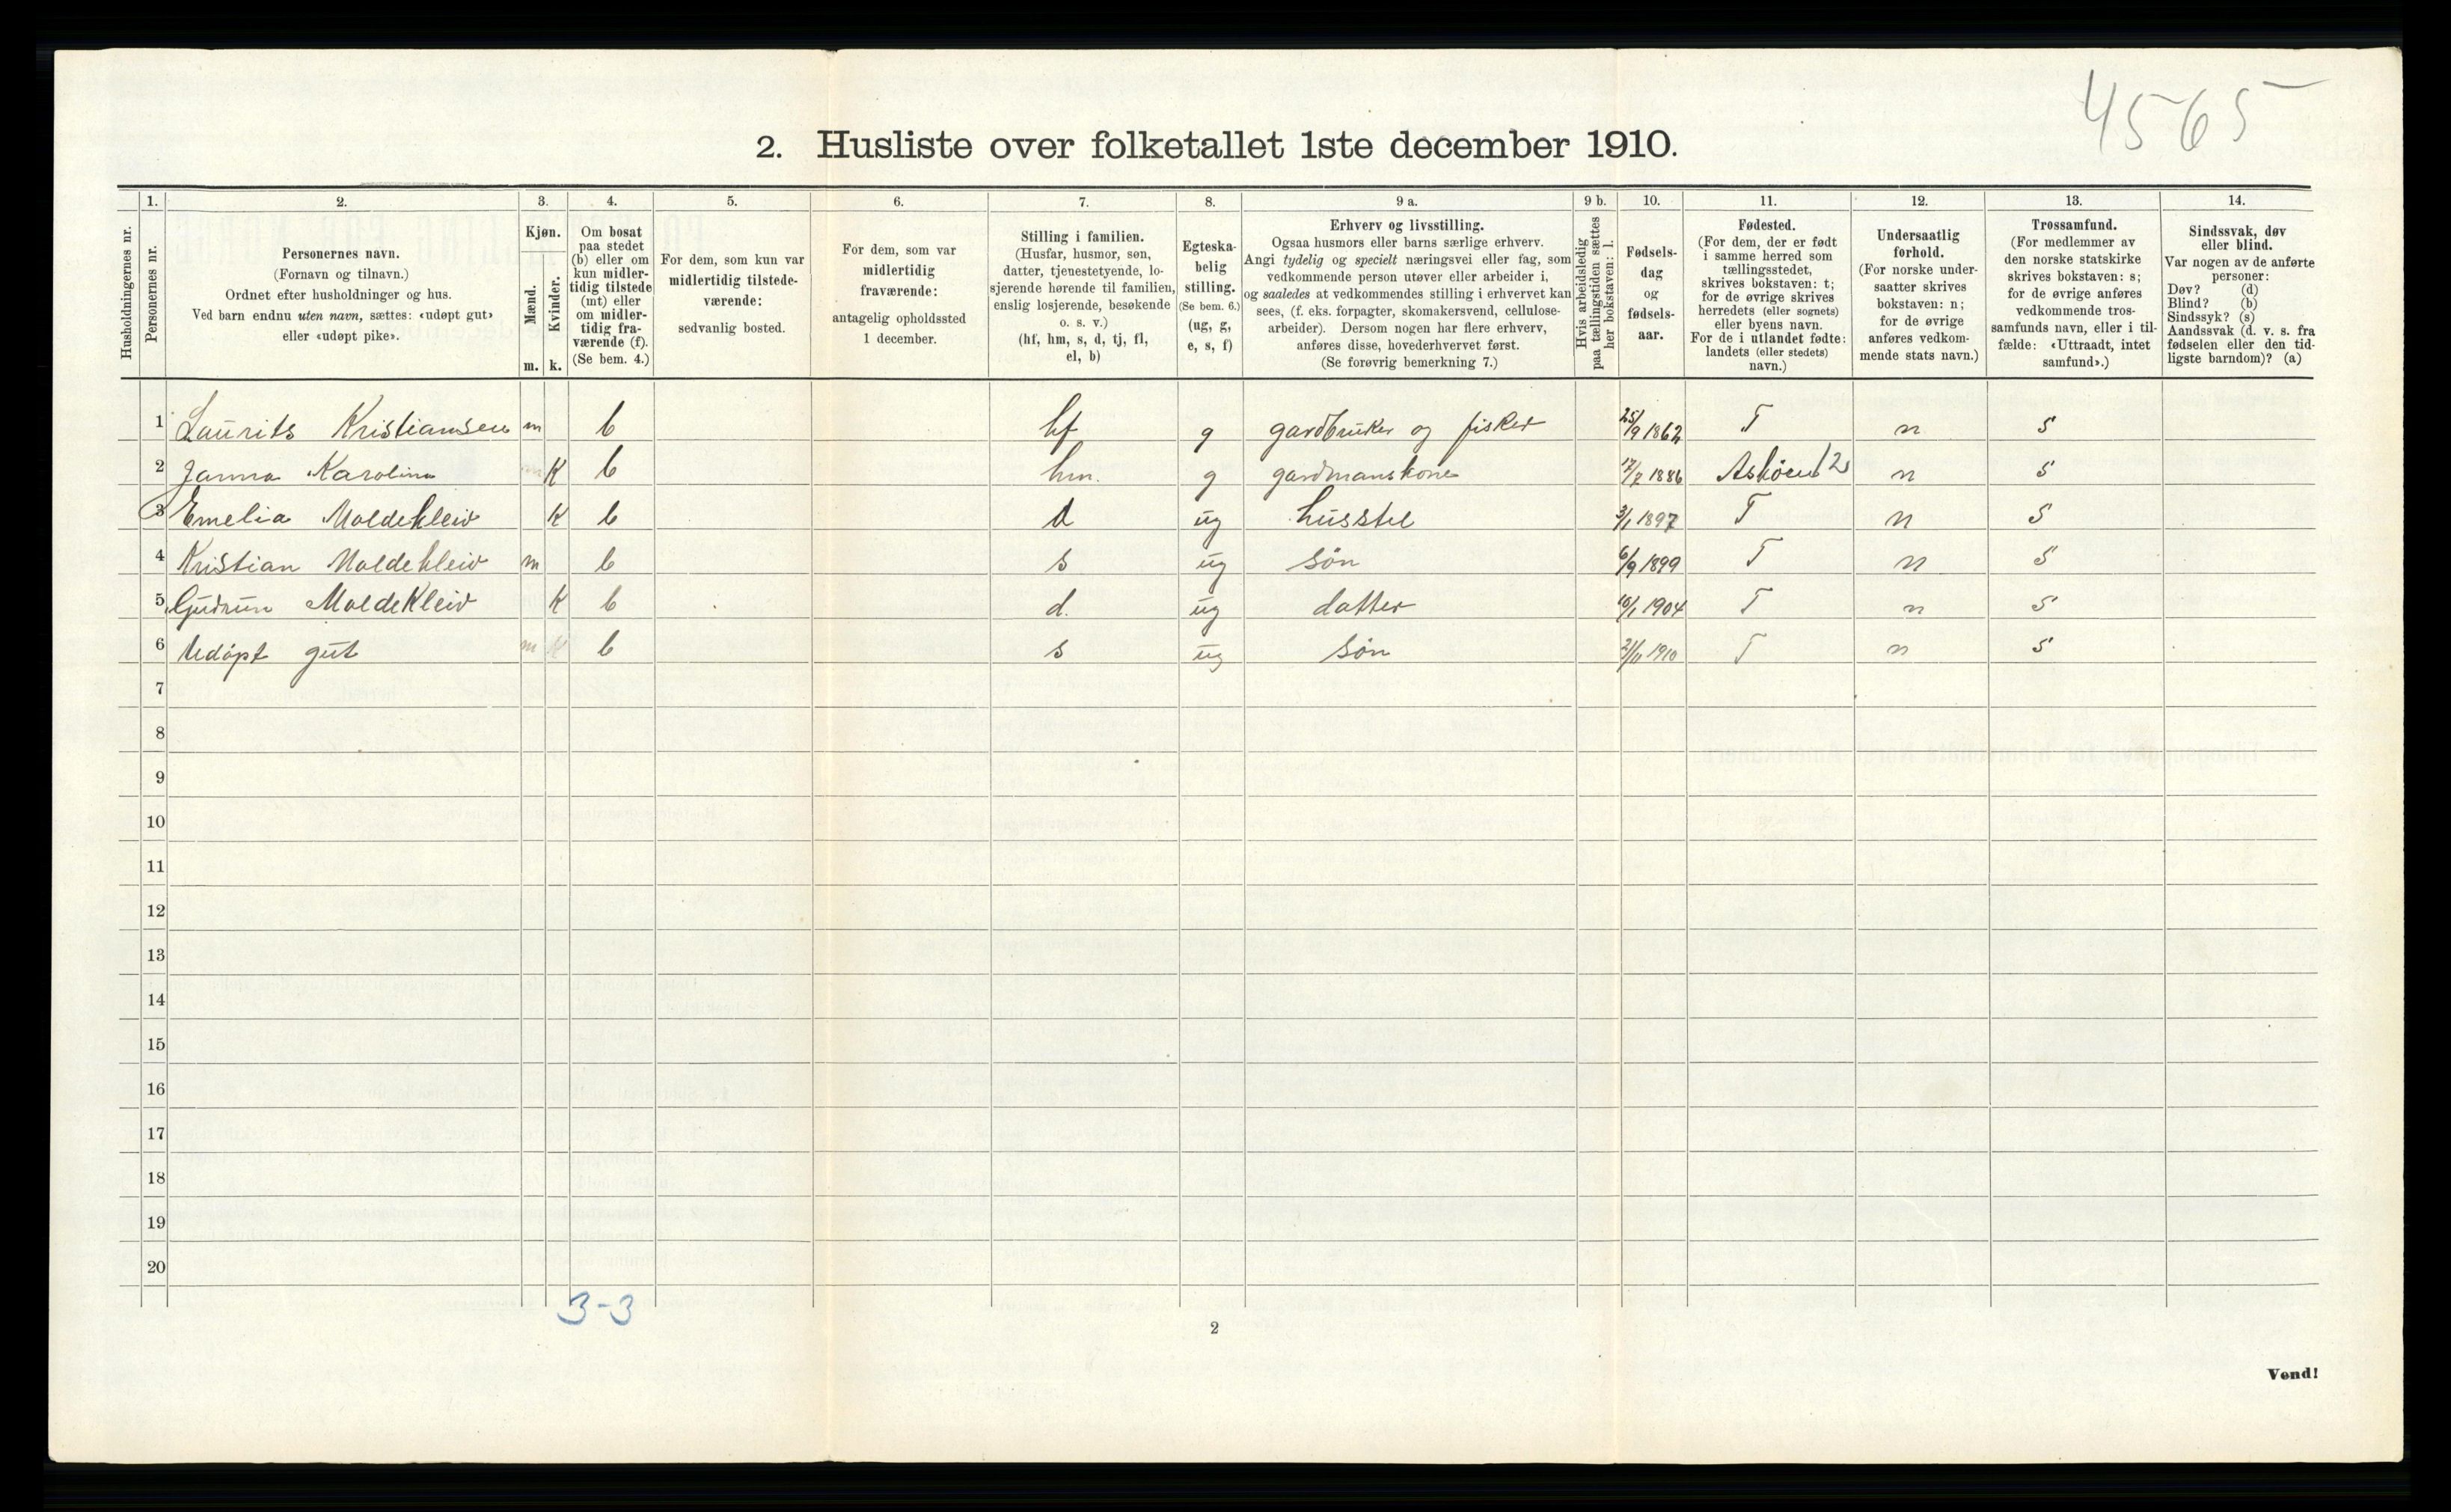 4565
2. Husliste over folketallet 1ste december 1910.
Husholdningernes nr.
1.
Personernes nr.
2.
Personernes navn.
(Fornavn og tilnavn.)
Ordnet efter husholdninger og hus.
Ved barn endnu uten navn, sættes: «udøpt gut»
eller «udøpt pike».
3.
Kjøn.
Mænd.
Kvinder.
m. k.
4.
Om bosat
paa stedet
(b) eller om
kun midler-
tidig tilstede
(mt) eller
om midler-
tidig fra-
værende (f).
(Se bem. 4.)
5.
For dem, som kun var
midlertidig tilstede-
værende:
sedvanlig bosted.
6.
For dem, som var
midlertidig
fraværende:
antagelig opholdssted
1 december.
7.
Stilling i familien.
(Husfar, husmor, søn,
datter, tjenestetyende, lo-
sjerende hørende til familien,
enslig losjerende, besøkende
o. s. v.)
(hf, hm, s, d, tj, fl,
el, b)
8.
Egteska-
belig
stilling.
(Se bem. 6.)
(ug, g,
e, s, f)
9 a.
Erhverv og livsstilling.
Ogsaa husmors eller barns særlige erhverv.
Angi tydelig og specielt næringsvei eller fag, som
vedkommende person utøver eller arbeider i,
og saaledes at vedkommendes stilling i erhvervet kan
sees, (f. eks. forpagter, skomakersvend, cellulose-
arbeider). Dersom nogen har flere erhverv,
anføres disse, hovederhvervet først.
(Se forøvrig bemerkning 7.)
9 b.
Hvis arbeidsledig
paa tællingstiden sættes
her bokstaven: l.
10.
Fødsels-
dag
og
fødsels-
aar.
11.
Fødested.
(For dem, der er født
i samme herred som
tællingsstedet,
skrives bokstaven: t;
for de øvrige skrives
herredets (eller sognets)
eller byens navn.
For de i utlandet fødte:
landets (eller stedets)
navn.)
12.
Undersaatlig
forhold.
(For norske under-
saatter skrives
bokstaven: n;
for de øvrige
anføres vedkom-
mende stats navn.)
13.
Trossamfund.
(For medlemmer av
den norske statskirke
skrives bokstaven: s;
for de øvrige anføres
vedkommende tros-
samfunds navn, eller i til-
fælde: «Uttraadt, intet
samfund».)
14.
Sindssvak, døv
eller blind.
Var nogen av de anførte
personer:
Døv? (d)
Blind? (b)
Sindssyk? (s)
Aandssvak (d. v. s. fra
fødselen eller den tid-
ligste barndom)? (a)
1 Laurits Kristiansen m b hf g gardbruker og fisker 25/9 1862 T n S
2 Janna Karolina K b hm. g gardmanskone 1886 n S
3 Emelia Moldekleiv K b d ug husstel 3/1 1897 T n S
4 Kristian Moldekleiv m b s ug søn 6/9 1899 T n S
5 Gudrun Moldekleiv K b d. ug datter 1904 T n S
6 Udöpt gut m k b s ug søn 21/11 1910 T n S
7
8
9
10
11
12
13
14
15
16
17
18
19
20
3-3
2
Vend!